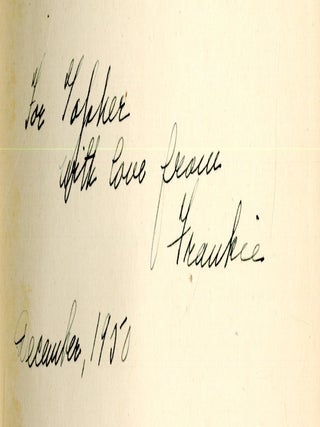 For Topher
with love from
Frankie
December, 1950